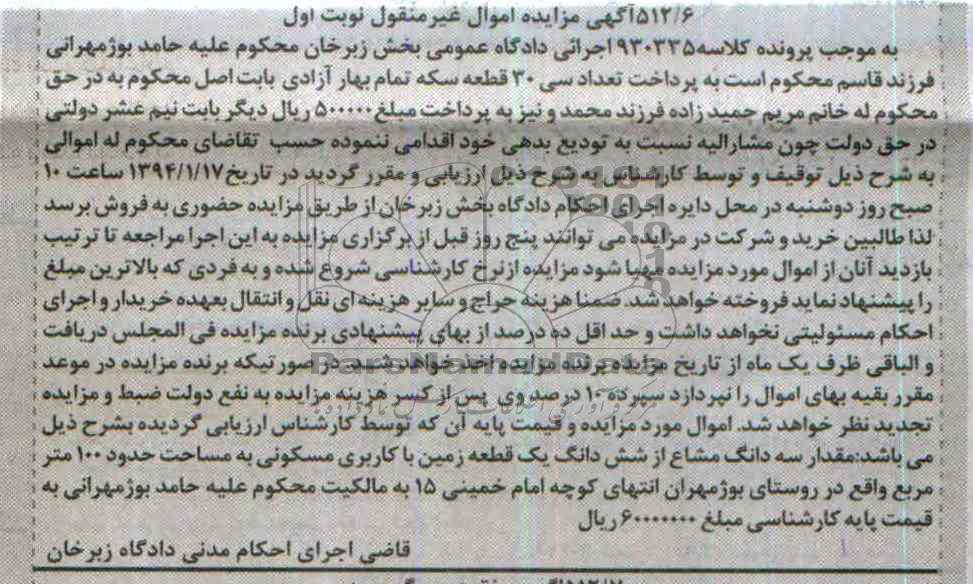 ۵۱۲/۶آگهی مزایده اموال غیرمنقول نوبت اول
به موجب پرونده کلاسه۹۳۰۳۳۵ اجرائی دادگاه عمومی بخش زبرخان محکوم علیه حامد بوژمهرانی
فرزند قاسم محکوم است به پرداخت تعداد سی ۳۰ قطعه سکه تمام بهار آزادی بابت اصل محکوم به در حق
محکوم له خانم مریم حمید زاده فرزند محمد و نیز به پرداخت مبلغ۵۰۰۰۰۰ ریال دیگر بابت نیم عشر دولتی
در حق دولت چون مشارالیه نسبت به تودیع بدهی خود اقدامی ننموده حسب تقاضای محکوم له اموالی
به شرح ذیل توقیف و توسط کارشناس به شرح ذیل ارزیابی و مقرر گردید در تاریخ۱۳۹۴/۱/۱۷ ساعت ۱۰
صبح روز دوشنبه در محل دایره اجرای احکام دادگاه بخش زبرخان از طریق مزایده حضوری به فروش برسد
لذا طالبین خرید و شرکت در مزایده می توانند پنج روز قبل از برگزاری مزایده به این اجرا مراجعه تا ترتیب
بازدید آنان از اموال مورد مزایده مهیا شود مزایده ازنرخ کارشناسی شروع شده و به فردی که بالاترین مبلغ
را پیشنهاد نماید فروخته خواهد شد. ضمنا هزینه حراج و سایر هزینه ای نقل و انتقال بعهده خریدار و اجرای
احکام مسئولیتی نخواهد داشت و حد اقل ده درصد از بهای پیشنهادی برنده مزایده فی المجلس دریافت
و الباقی ظرف یک ماه از تاریخ مزایده برنده مزایده اخذ خواهد شد. در صورتیکه برنده مزایده در موعد
مقرر بقیه بهای اموال را نپردازد سپرده ۱۰ درصد وی پس از کسر هزینه مزایده به نفع دولت ضبط و مزایده
تجدید نظر خواهد شد. اموال مورد مزایده و قیمت پایه آن که توسط کارشناس ارزیابی گردیده بشرح ذیل
می باشد:مقدار سه دانگ مشاع از شش دانگ یک قطعه زمین با کاربری مسکونی به مساحت حدود ۱۰۰ متر
مربع واقع در روستای بوژمهران انتهای کوچه امام خمینی ۱۵ به مالکیت محکوم علیه حامد بوژمهرانی به
قیمت پایه کارشناسی مبلغ ۶۰۰۰۰۰۰۰ ریال
قاضی اجرای احکام مدنی دادگاه زبرخان
ParsNamadData